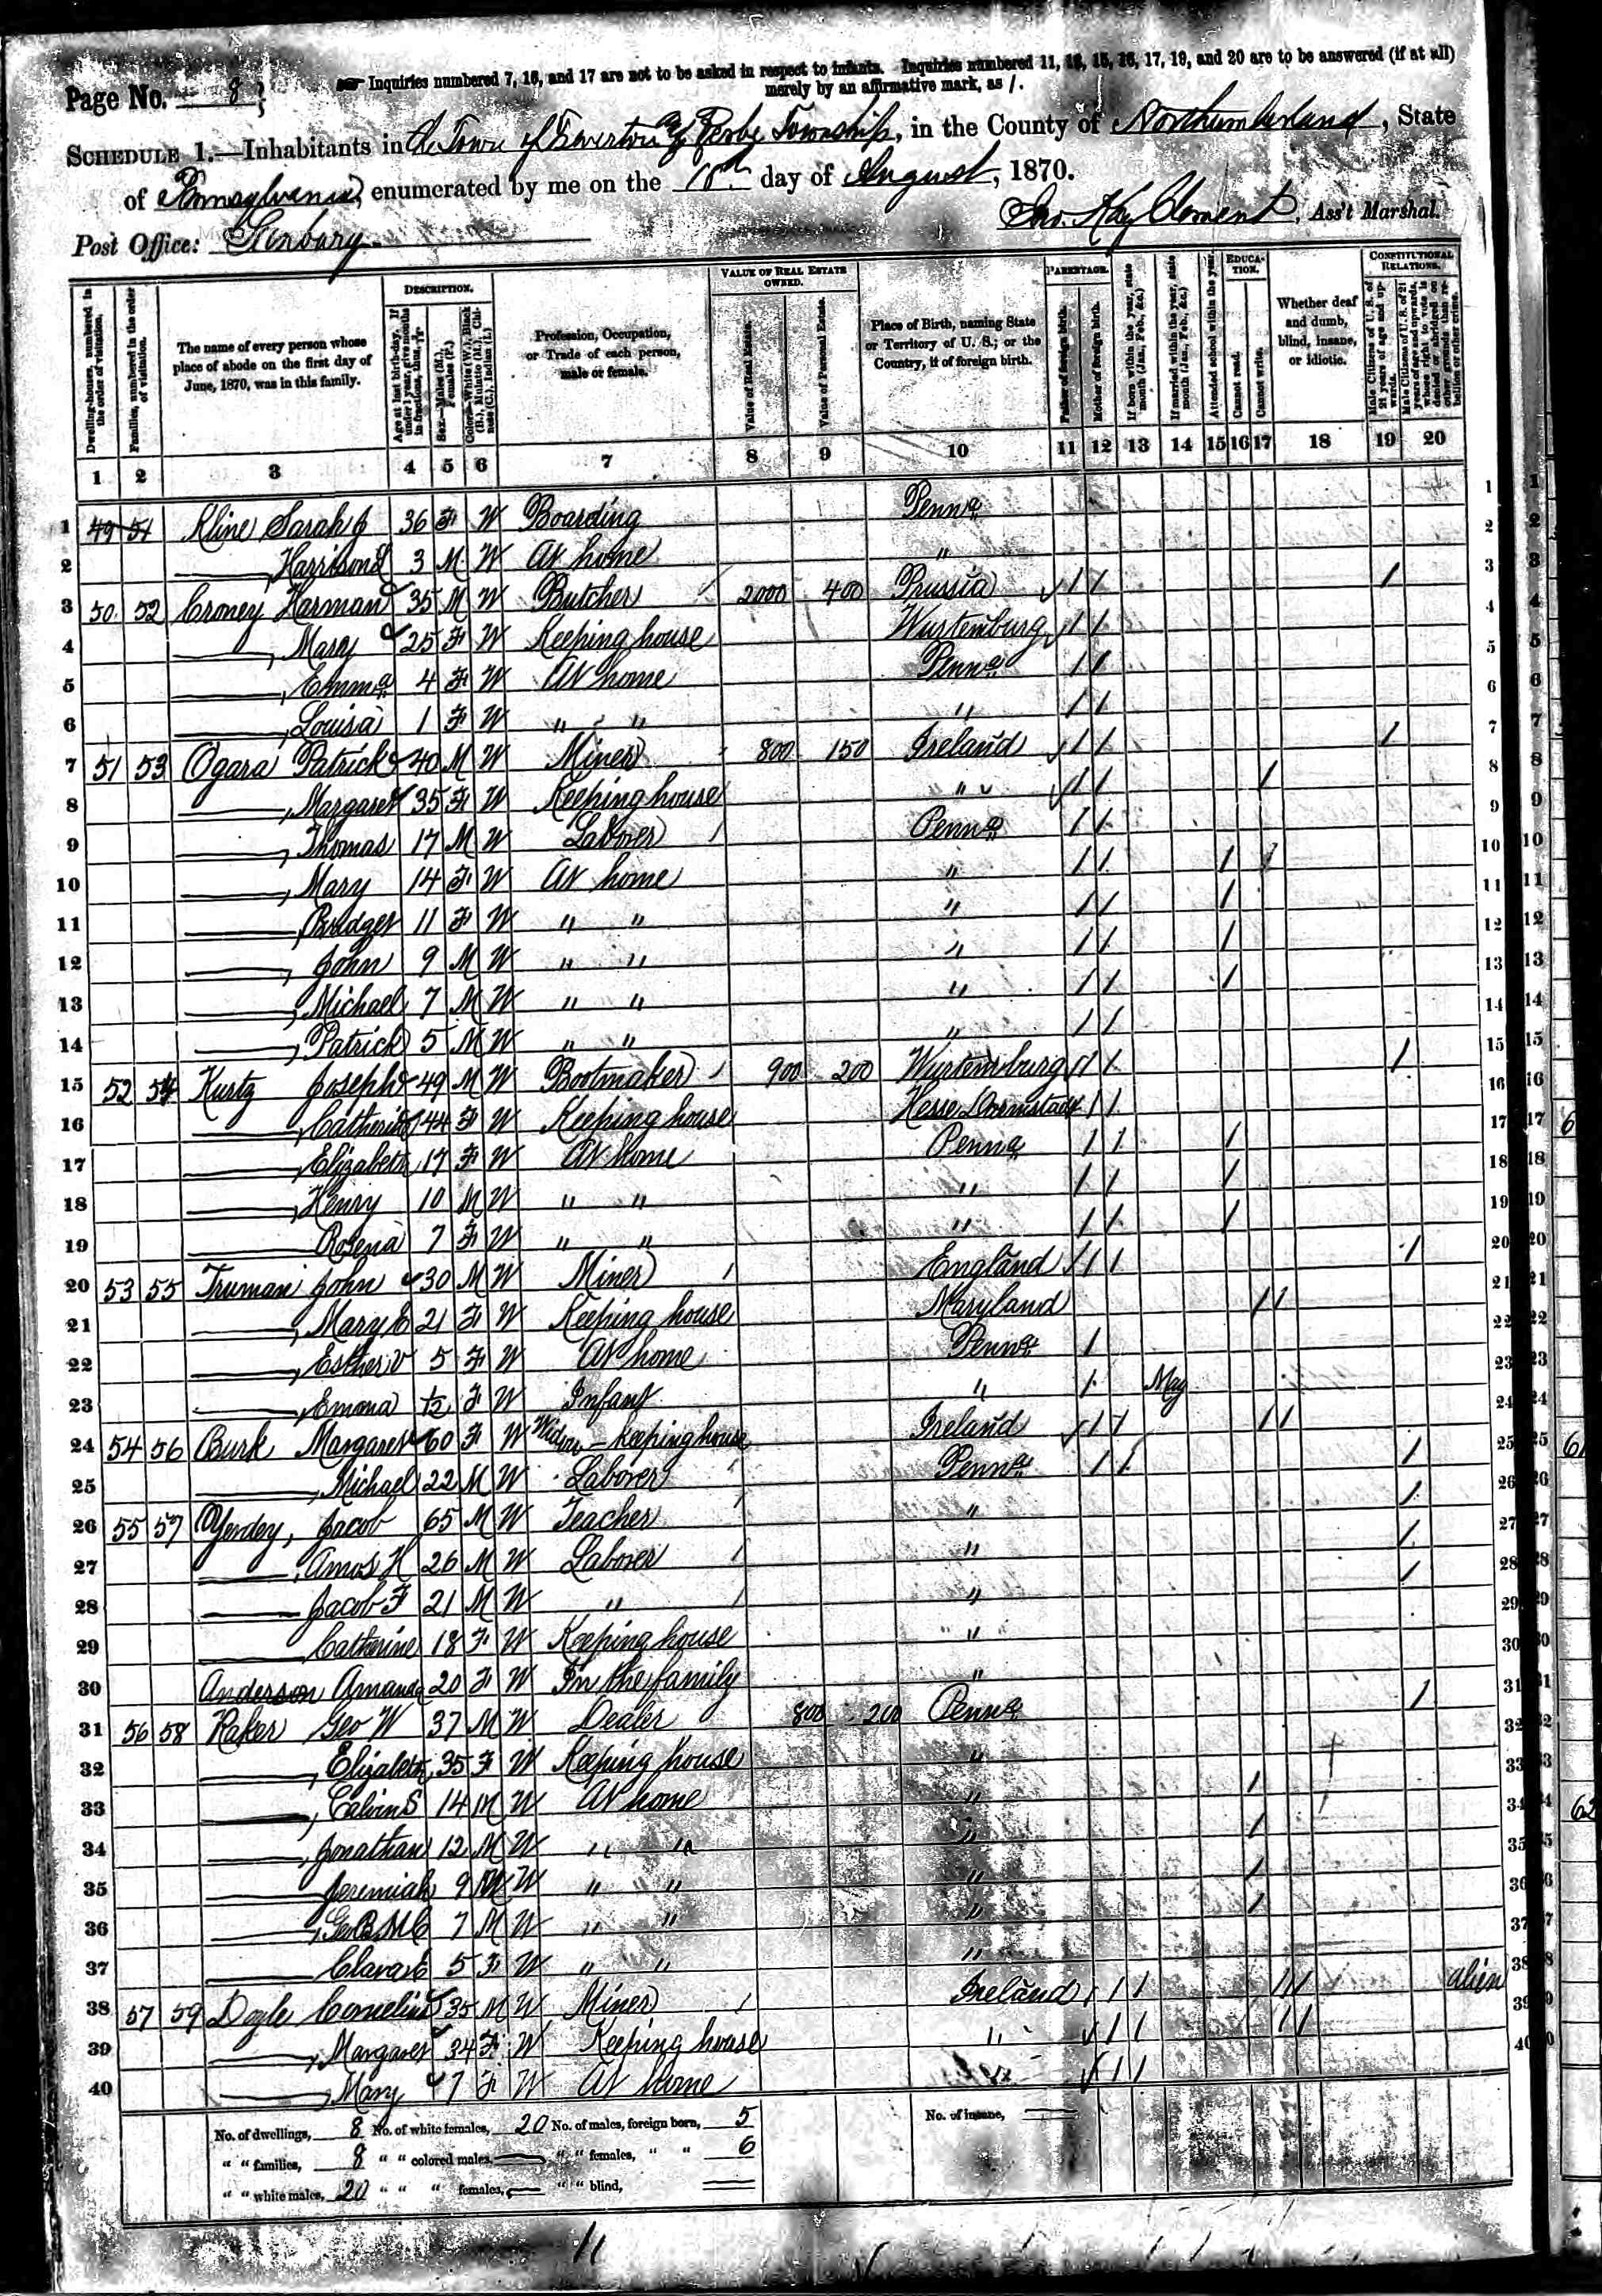 Page No. 8
Inquiries numbered 7, 16, and 17 are not to be asked in respect to infants. Inquiries numbered 11, 12, 15, 16, 17, 19, and 20 are to be answered (if at all)
merely by an affirmative mark, as /.
SCHEDULE 1.—Inhabitants in the Town of Township, in the County of Northumberland, State
of Pennsylvania, enumerated by me on the day of August, 1870.
Post Office: Sunbury Jno. Kay Clement, Ass't Marshal.
Dwelling-houses, numbered in the order of visitation.
Families, numbered in the order of visitation.
The name of every person whose place of abode on the first day of June, 1870, was in this family.
DESCRIPTION.
Age at last birth-day. If under 1 year, give months in fractions, thus,
Sex.—Males (M.), Females (F.)
Color.—White (W.), Black (B.), Mulatto (M.), Chinese (C.), Indian (I.)
Profession, Occupation, or Trade of each person, male or female.
VALUE OF REAL ESTATE OWNED.
Value of Real Estate.
Value of Personal Estate.
Place of Birth, naming State or Territory of U. S.; or the Country, if of foreign birth.
PARENTAGE.
Father of foreign birth.
Mother of foreign birth.
If born within the year, state month (Jan., Feb., &c.)
If married within the year, state month (Jan., Feb., &c.)
Attended school within the year.
EDUCATION.
Cannot read.
Cannot write.
Whether deaf and dumb, blind, insane, or idiotic.
CONSTITUTIONAL RELATIONS.
Male Citizens of U. S. of 21 years of age and upwards.
Male Citizens of U. S. of 21 years of age and upwards, whose right to vote is denied or abridged on other grounds than rebellion or other crime.
1 2 3 4 5 6 7 8 9 10 11 12 13 14 15 16 17 18 19 20
1 49 51 Kline Sarah J 36 F W Boarding Penna 1
2 Harrison 3 M W At home " 2
3 50 52 Croney Harman 35 M W Butcher 2000 400 Prussia / / / 3
4 Mary 25 F W Keeping house Wurtemburg / / 4
5 Emma 4 F W At home Penna / / 5
6 Louisa 1 F W " " " / / 6
7 51 53 Ogara Patrick 40 M W Miner 800 150 Ireland / / / 7
8 Margaret 35 F W Keeping house " / / / 8
9 Thomas 17 M W Laborer Penna / / 9
10 Mary 14 F W At home " / / / / 10
11 Bridget 11 F W " " " / / / 11
12 John 9 M W " " " / / / 12
13 Michael 7 M W " " " / / / 13
14 Patrick 5 M W " " " / / 14
15 52 54 Kurtz Joseph 49 M W Bootmaker 900 200 Wurtemburg / / / 15
16 Catherine 44 F W Keeping house Hesse Darmstadt / / 16
17 Elizabeth 17 F W At home Penna / / / 17
18 Henry 10 M W " " " / / / 18
19 Rosena 7 F W " " " / / / 19
20 53 55 Truman John 30 M W Miner England / / / 20
21 Mary E 21 F W Keeping house Maryland / / 21
22 Esther V 5 F W At home Penna / 22
23 Emma F W Infant " / May 23
24 54 56 Burk Margaret 60 F W Widow - Keeping house Ireland / / / / 24
25 Michael 22 M W Laborer Penna / / / 25
26 55 57 Jacob 65 M W Teacher " / 26
27 Amos H 26 M W Laborer " / 27
28 Jacob F 21 M W " " / 28
29 Catherine 18 F W Keeping house " 29
30 Anderson Amanda 20 F W In the family " 30
31 56 58 Raker Geo W 37 M W Dealer 800 200 Penna / 31
32 Elizabeth 35 F W Keeping house " 32
33 Calvin S 14 M W At home " / 33
34 Jonathan 12 M W " " " / 34
35 Jeremiah 9 M W " " " / 35
36 Geo B Mc 7 M W " " " / 36
37 Clara E 5 F W " " " 37
38 57 59 Doyle Cornelius 35 M W Miner Ireland / / / / Alien 38
39 Margaret 34 F W Keeping house " / / / / 39
40 Mary 7 F W At home / / 40
No. of dwellings, 8 No. of white females, 20 No. of males, foreign born, 5 No. of insane,
" " families, 8 " " colored males, " " females, " " 6
" " white males, 20 " " " females, " " blind,
11